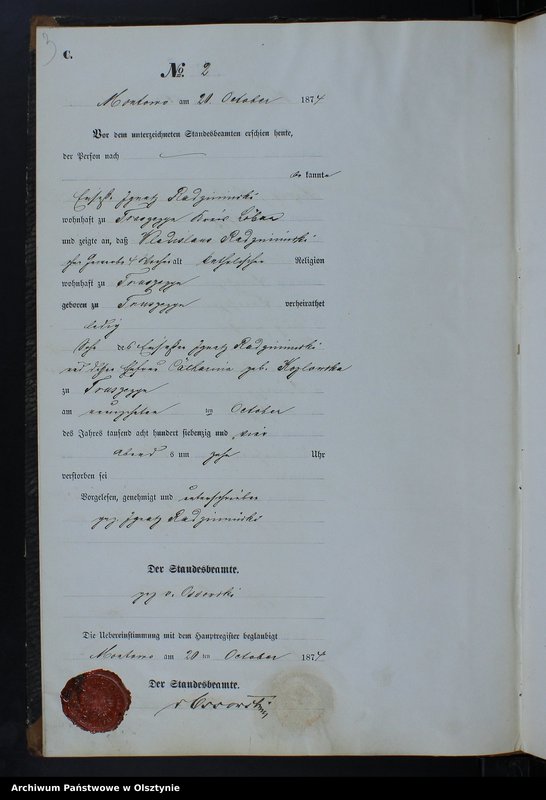 3
C.
No. 2
Montowo am 20. October 1874
Vor dem unterzeichneten Standesbeamten erschien heute,
der Person nach
be kannt
Ignatz Radziminski
wohnhaft zu Kreis Löbau
und zeigte an, daß Vladislaus Radziminski
4 Wochen alt katholischer Religion
wohnhaft zu
geboren zu verheirathet
ledig
Sohn des Ignatz Radziminski
und dessen Ehefrau Catharina geb. Kozlowska
zu
am neunzehnten ten October
des Jahres tausend acht hundert siebenzig und vier
Abend s um zehn Uhr
verstorben sei
Vorgelesen, genehmigt und unterschrieben
gez Ignatz Radziminski
Der Standesbeamte.
gez v. Ossowski
Die Uebereinstimmung mit dem Hauptregister beglaubigt
Montowo am 20 ten October 1874
Der Standesbeamte.
v Ossowski
Archiwum Państwowe w Olsztynie